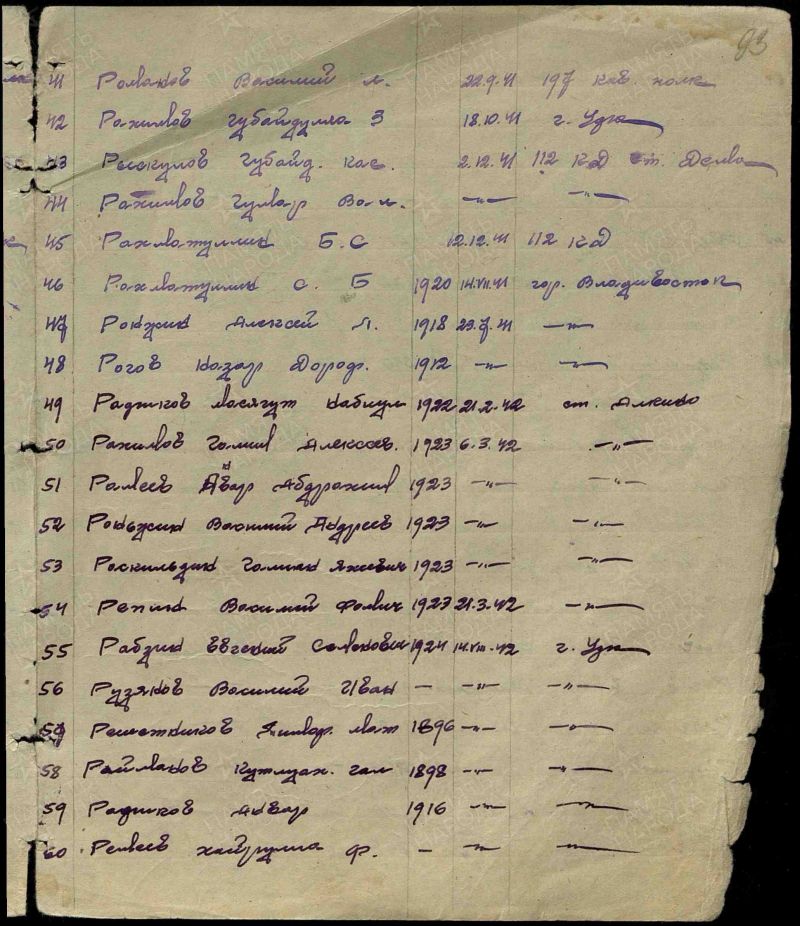 93
41 Романов Василий М. 22.9.41 197 кав. полк
42 Рахимов Губайдулла З 18.10.41 г. Уфа
43 Рыскулов Губайд. Кас. 2.12.41 112 КД ст. Дема
44 Рахимов Гумар Вал. —"— —"—
45 Рахматуллин Б. С 12.12.41 112 КД
46 Рахматуллин С. Б 1920 14.VII.41 гор. Владивосток
47 Ронжин Алексей Л. 1918 23.7.41 —"—
48 Рогов Назар Дороф. 1912 —"— —"—
49 Радиков Масягут 1922 21.2.42 ст. Алкино
50 Рахимов Галий Алексеев. 1923 6.3.42 —"—
51 Рамеев Анвар Абдрахим 1923 —"— —"—
52 Роньжин Василий Андреев 1923 —"— —"—
53 Раскильдин 1923 —"— —"—
54 Репин Василий Фомич 1923 21.3.42 —"—
55 Рабзин Евгений Семенович 1924 14.VIII.42 г. Уфа
56 Рузяков Василий Иван — —"— —"—
57 Решетников 1896 —"— —"—
58 Райманов Кутлуах. Гал 1898 —"— —"—
59 Радиков Анвар 1916 —"— —"—
60 Рамеев Хайрулла Ф. — —"— —"—